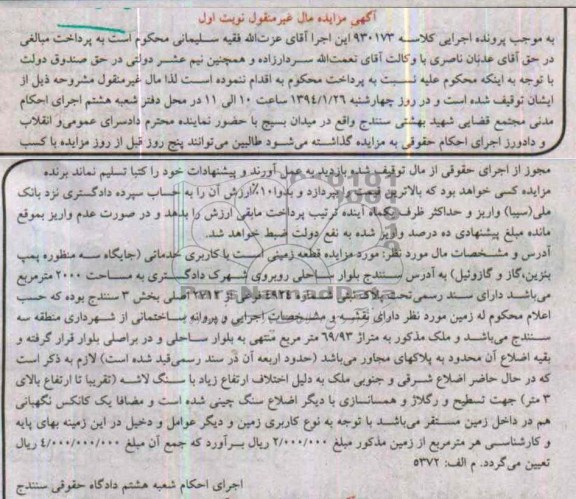 آگهی مزایده مال غیرمنقول نوبت اول
به موجب پرونده اجرایی کلاسه ۹۳۰۱۷۳ این اجرا آقای عزت‌الله فقیه سلیمانی محکوم است به پرداخت مبالغی
در حق آقای عدنان ناصری با وکالت آقای نعمت‌الله سردارزاده و همچنین نیم عشر دولتی در حق صندوق دولت
با توجه به اینکه محکوم علیه نسبت به پرداخت محکوم به اقدام ننموده است لذا مال غیرمنقول مشروحه ذیل از
ایشان توقیف شده است و در روز چهارشنبه ۱۳۹٤/۱/۲٦ ساعت ۱۰ الی ۱۱ در محل دفتر شعبه هشتم اجرای احکام
مدنی مجتمع قضایی شهید بهشتی سنندج واقع در میدان بسیج با حضور نماینده محترم دادسرای عمومی و انقلاب
و دادورز اجرای احکام حقوقی به مزایده گذاشته می‌شود طالبین می‌توانند پنج روز قبل از روز مزایده با کسب
مجوز از اجرای حقوقی از مال توقیف شده بازدید به عمل آورند و پیشنهادات خود را کتبا تسلیم نماند برنده
مزایده کسی خواهد بود که بالاترین قیمت را بپردازد و بدوا ۱۰٪ ارزش آن را به حساب سپرده دادگستری نزد بانک
ملی(سیبا) واریز و حداکثر ظرف یکماه آینده ترتیب پرداخت مابقی ارزش را بدهد و در صورت عدم واریز بموقع
مانده مبلغ پیشنهادی ده درصد واریز شده به نفع دولت ضبط خواهد شد.
آدرس و مشخصات مال مورد نظر: مورد مزایده قطعه زمینی است با کاربری خدماتی (جایگاه سه منظوره پمپ
بنزین،گاز و گازوئیل) به آدرس سنندج بلوار ساحلی روبروی شهرک دادگستری به مساحت ۲۰۰۰ مترمربع
می‌باشد دارای سند رسمی تحت پلاک ثبتی شماره ٤۹۲٤ فرعی از ۲۷۱۲ اصلی بخش ۳ سنندج بوده که حسب
اعلام محکوم له زمین مورد نظر دارای نقشه و مشخصات اجرایی و پروانه ساختمانی از شهرداری منطقه سه
سنندج می‌باشد و ملک مذکور به متراژ ٦۹/۹۳ متر مربع منتهی به بلوار ساحلی و در براصلی بلوار قرار گرفته و
بقیه اضلاع آن محدود به پلاکهای مجاور می‌باشد (حدود اربعه آن در سند رسمی قید شده است) لازم به ذکر است
که در حال حاضر اضلاع شرقی و جنوبی ملک به دلیل اختلاف ارتفاع زیاد با سنگ لاشه (تقریبا تا ارتفاع بالای
۳ متر) جهت تسطیح و رگلاژ و همسانسازی با دیگر اضلاع سنگ چینی شده است و مضافا یک کانکس نگهبانی
هم در داخل زمین مستقر می‌باشد با توجه به نوع کاربری زمین و دیگر عوامل و دخیل در این زمینه بهای پایه
و کارشناسی هر مترمربع از زمین مذکور مبلغ ۲/۰۰۰/۰۰۰ ریال برآورد که جمع آن مبلغ ٤/۰۰۰/۰۰۰/۰۰۰ ریال
تعیین می‌گردد. م الف: ۵۳۷۲
اجرای احکام شعبه هشتم دادگاه حقوقی سنندج